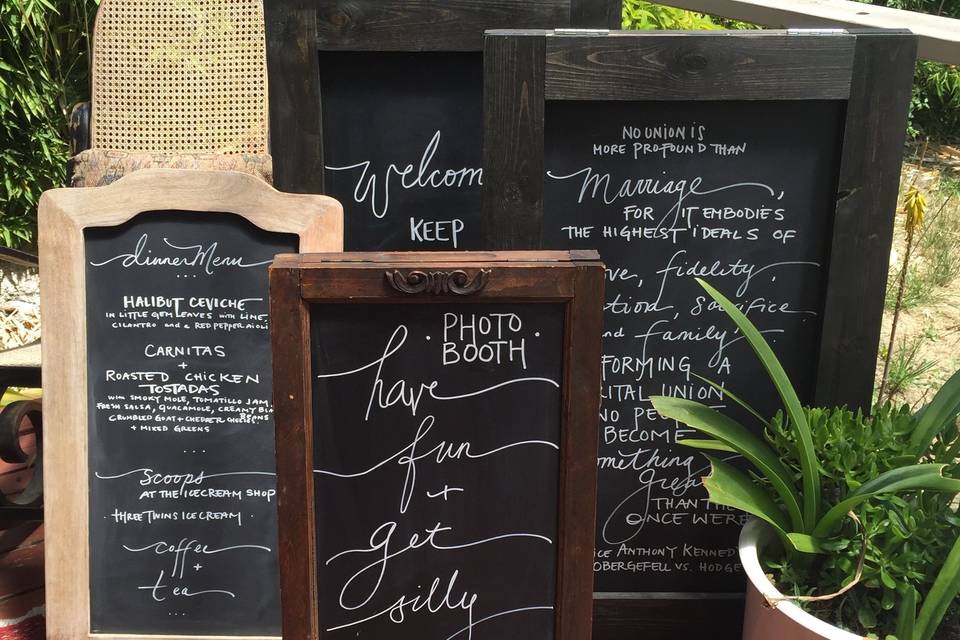 dinner Menu
HALIBUT CEVICHE
IN LITTLE GEM LEAVES with LIME,
CILANTRO and a RED PEPPER AIOLI
CARNITAS
+
ROASTED CHICKEN
TOSTADAS
with SMOKY MOLE, TOMATILLO JAM,
FRESH SALSA, GUACAMOLE, CREAMY BLA
BEANS
CRUMBLED GOAT + CHEDDAR CHEESES,
+ MIXED GREENS
Scoops
AT THE ICECREAM SHOP
THREE TWINS ICECREAM.
coffee
+
tea
Welcom
KEEP
PHOTO
BOOTH
have
fun
+
get
silly
NO UNION IS
MORE PROFOUND THAN
Marriage,
FOR IT EMBODIES
THE HIGHEST IDEALS OF
ve, fidelity,
otion, Sacrifice
nd family.
FORMING A
ITAL UNION
NO PEO
BECOME
omething
Grea
THAN THE
ONCE WERE
ICE ANTHONY KENNEDY
OBERGEFELL VS. HODGE